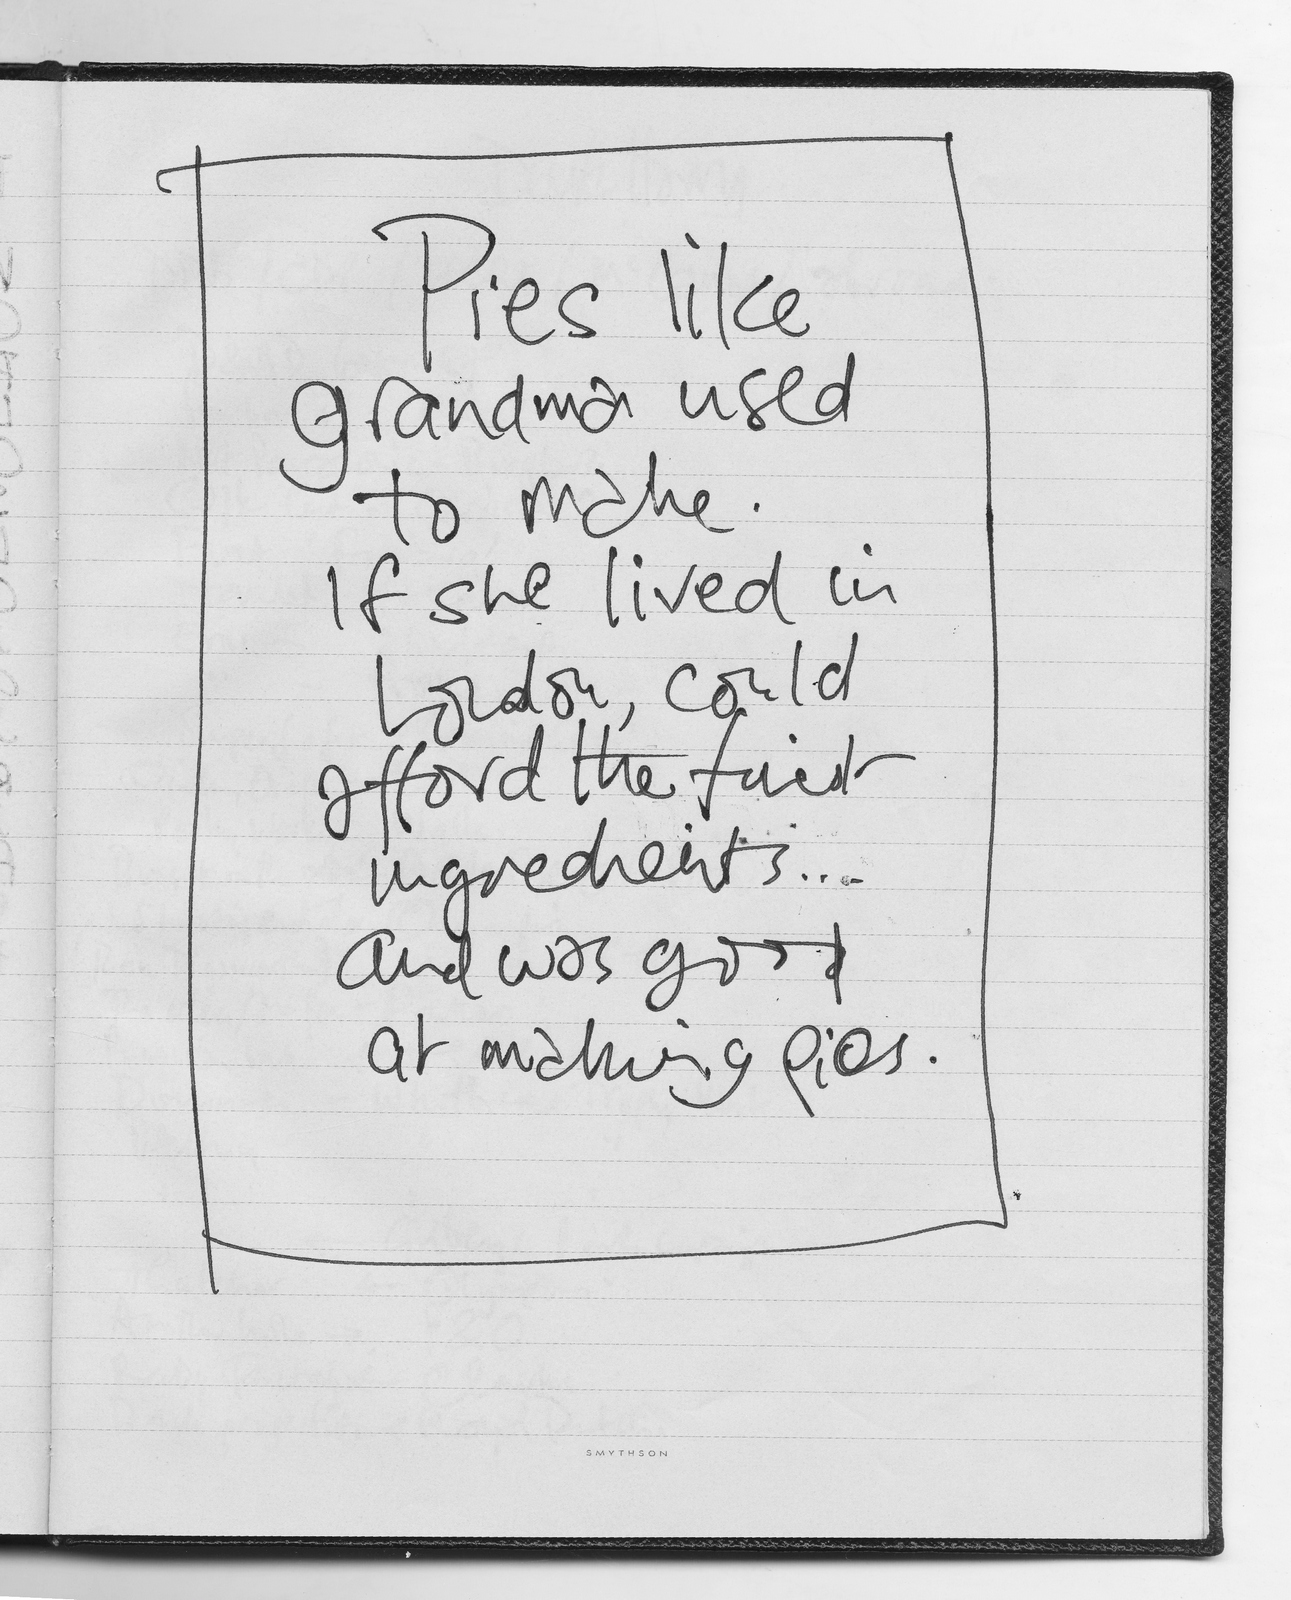 Pies like
grandma used
to make.
If she lived in
London, could
afford the finest
ingredients...
and was good
at making pies.
SMYTHSON